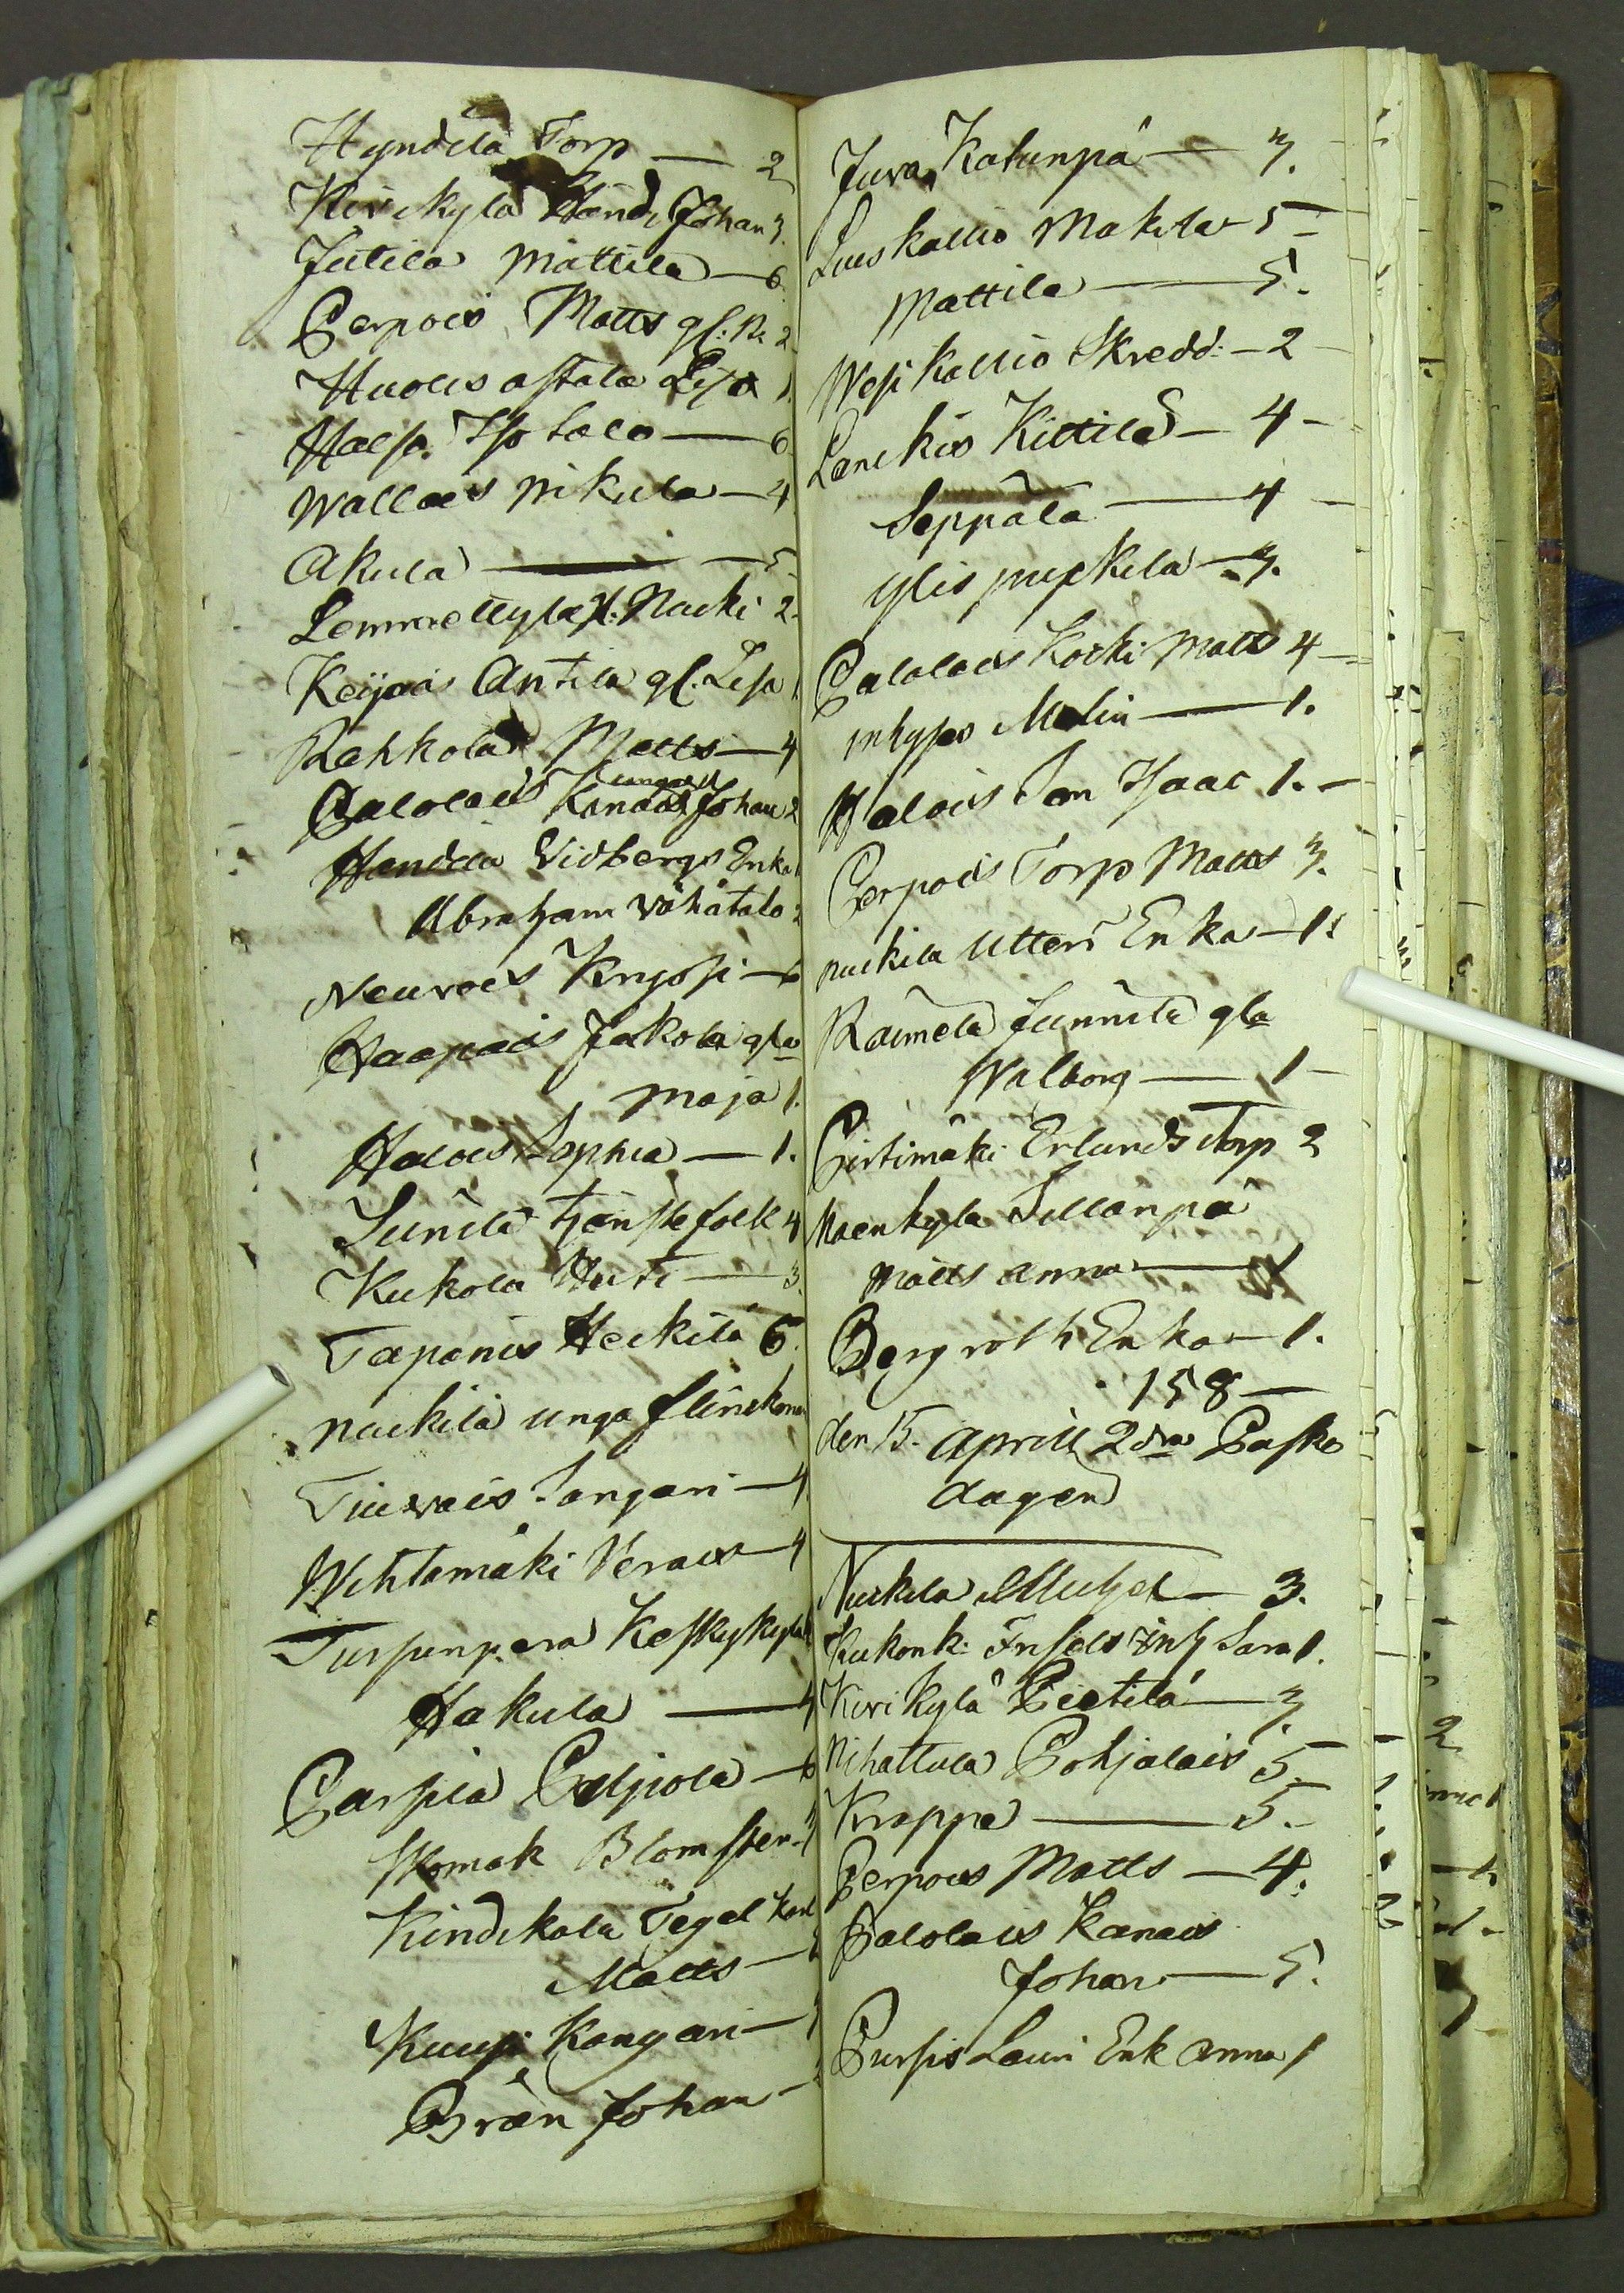 Hyndilä Torp — 2
Kirekylä Händ. Johan 3.
Jutila Mattila — 6.
Perpois Matts gl: N. 2
Huolis astala Lisa 1.
Halso. Iso talo — 6
Wallais Nikula — 4
Akula — 5
Lemmettylä H. Nuoki 2.
Keijais Antila gl. Lisa 1
Rahkola Matts — 4
Palolais Kanais unga Johan 2
Handila Vidbergs Enka 1
Abraham Vähätalo 2
Neuvois Krysi — 6
Haapais Jakola gla
Maja 1.
Halois Sophia — 1.
Junila tjenstefolk 4
Kukola Huti — 3.
Tapanis Heikilä 6.
Nuikila unga flinkona
Tiuvais Sangari — 4
Wihtamäki Verais — 4
Tursunpera Keskykylä
Hakula — 4
Parsia Peljola — 6
Womak Blomster —
Kindikala Tegel Karl
Matts —
Kuusi Kangari —
Brän Johan —
Juva Katunpä — 3.
Luis kallio Makila — 5 —
Mattila — 5.
Wesi kallio Skredd: — 2 —
Lankis Kittilä — 4 —
Seppälä — 4 —
Ylis puskila — 3.
Palolais Koiki Matts 4 —
inhyses Malin — 1.
Halois Son Isaac 1. —
Perpois Torp Matts 3.
Nuikila Utteri Enka — 1.
Raimela Junnila gla
Walborg — 1 —
Pirtimäki Erlunds Torp 2
Maenkyla Sillanpä
Matts anna — 1
Bergroth Enka — 1.
158 —
den 15. Aprill 2dra Paske
dagen
Nuikila Muhel — 3.
Kukonk: Insels inh Sara 1.
Kirikylä Pietilä — 3
Nihattula Pohjalais 5 —
Krappe — 5. —
Perpois Matts — 4.
Palolais Kanais
Johan — 5.
Pursis Lauri Enk Anna 1